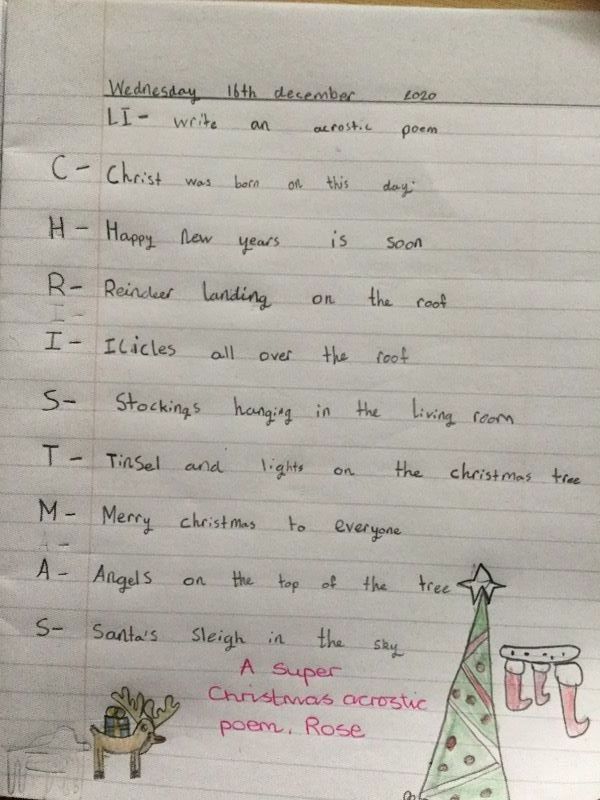 Wednesday 16th december 2020
LI- write an acrostic poem
C- Christ was born on this day.
H- Happy New years is soon
R- Reindeer landing on the roof
I-
I- Icicles all over the roof
S- Stockings hanging in the living room
T- Tinsel and lights on the christmas tree
M- Merry christmas to everyone
A-
A- Angels on the top of the tree
S- Santa's Sleigh in the sky
A super
Christmas acrostic
poem, Rose